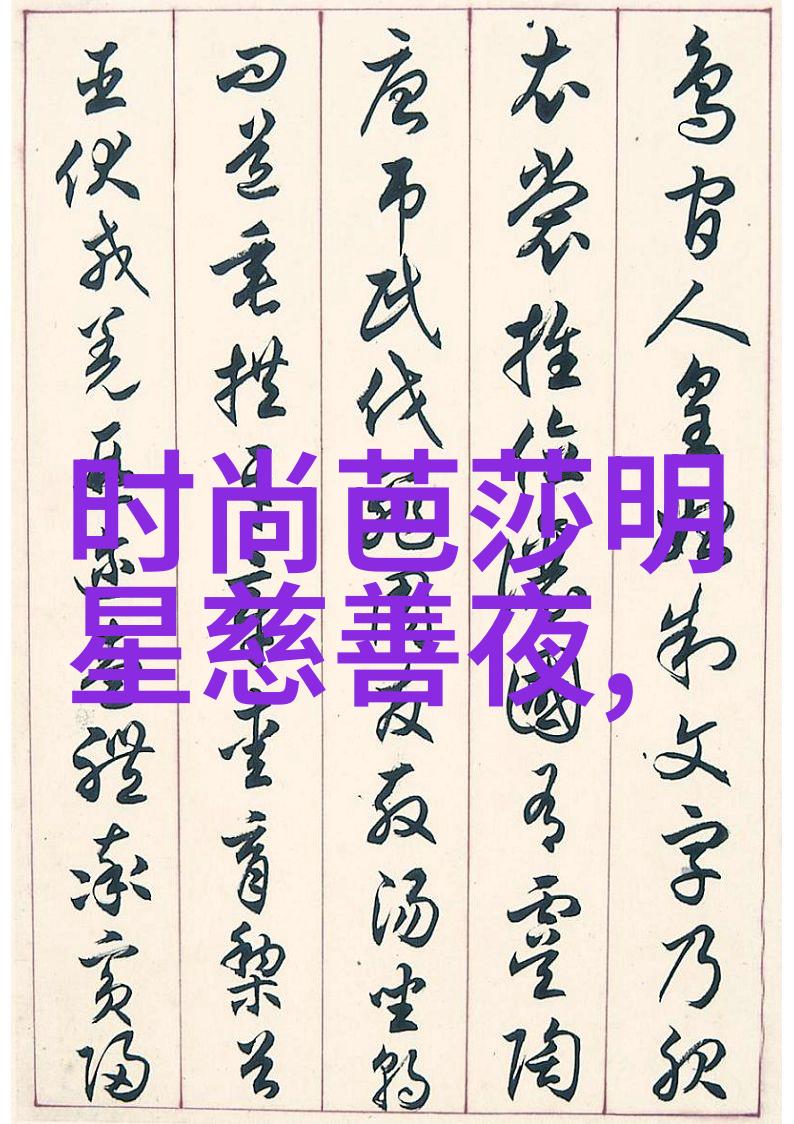 鳥官人皇始制文字乃服
衣裳推位讓國有虞陶
唐吊民伐罪周發殷湯坐朝
問道垂拱平章愛育黎首
臣伏戎羌遐邇壹體率賓歸
时尚芭莎明
星慈善夜,